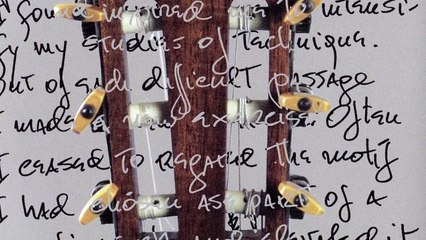 I found inspired me to intensi-
fy my studies of technique.
Out of each difficult passage
I made a new exercise. Often
I ceased to regard the motif
I had chosen as part of a